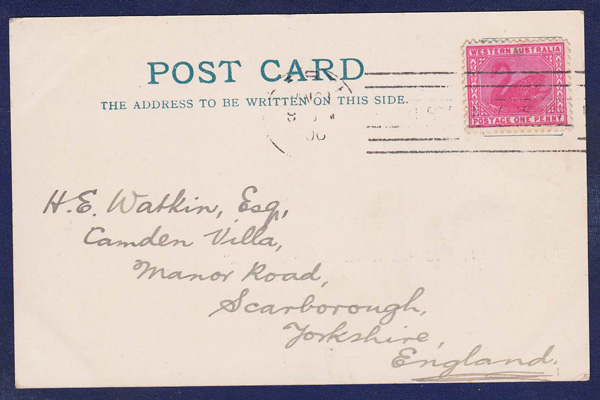 POST CARD
THE ADDRESS TO BE WRITTEN ON THIS SIDE.
WESTERN AUSTRALIA
POSTAGE ONE PENNY
H. E. Watkin, Esq.,
Camden Villa,
Manor Road,
Scarborough,
Yorkshire,
England.